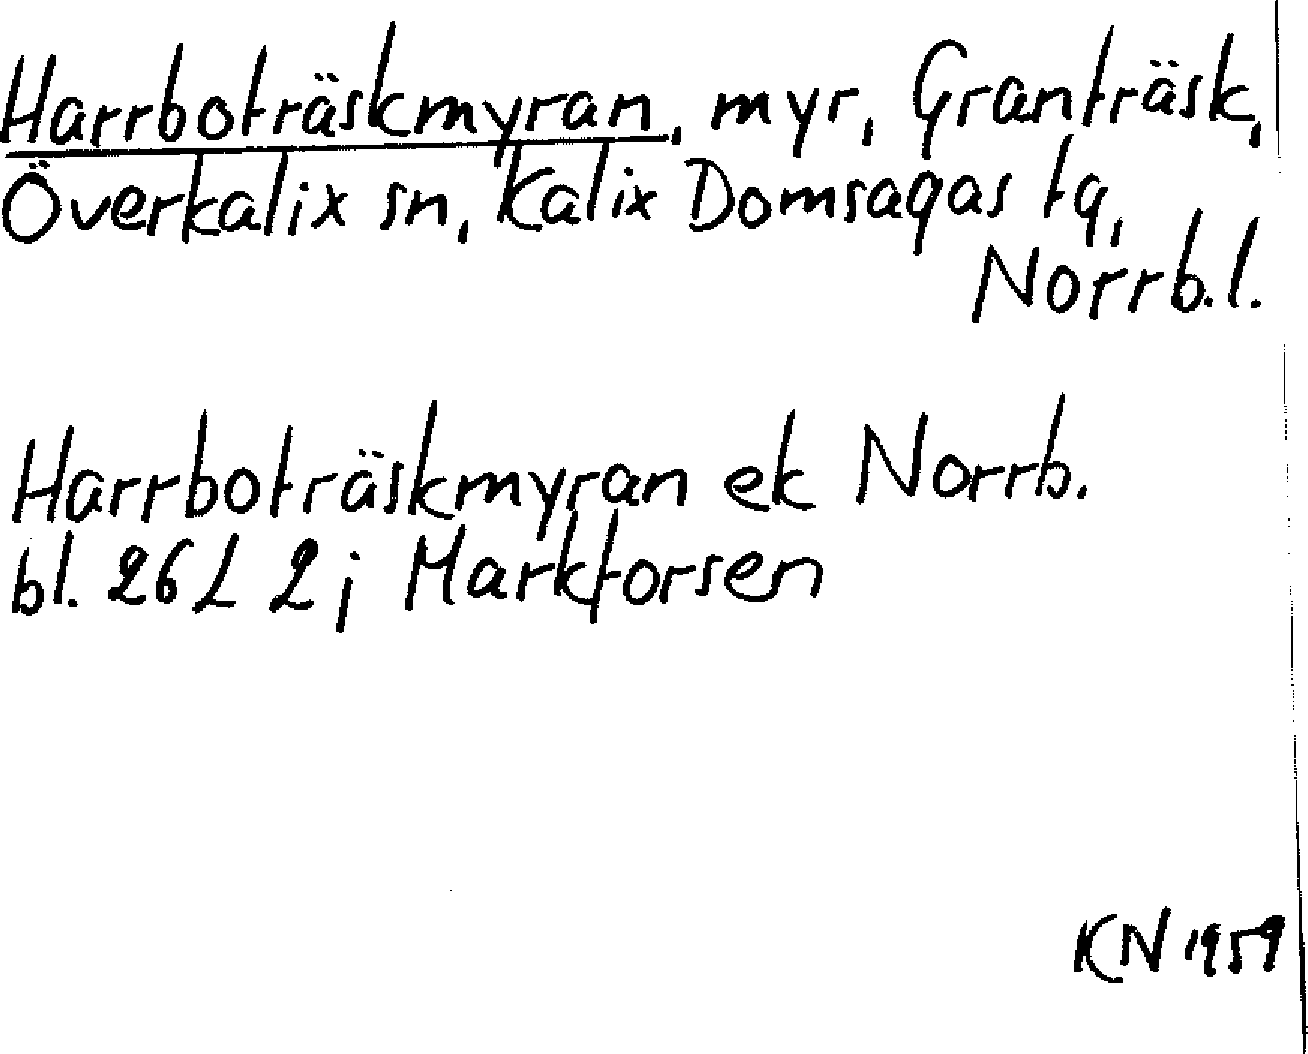 Harrboträskmyran, myr, Granträsk,
Överkalix sn, Kalix Domsagas tg,
Norrb.l.
Harrboträskmyran ek Norrb.
bl. 26 L 2 j Markforsen
KN 1959